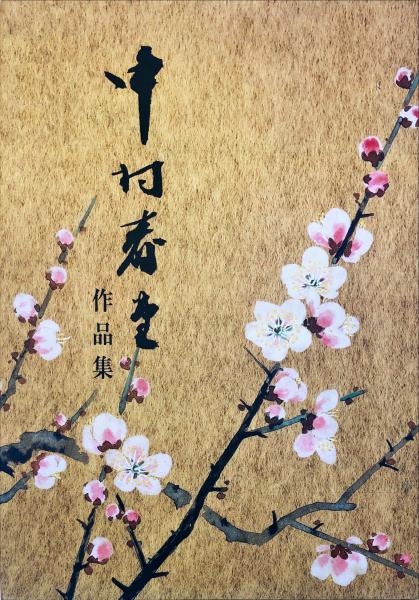 中村春堂
作品集